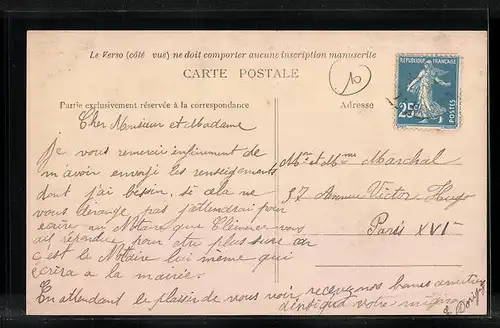 Le Verso (côté vue) ne doit comporter aucune inscription manuscrite
CARTE POSTALE
10
RÉPUBLIQUE FRANÇAISE
25c
POSTES
Partie exclusivement réservée à la correspondance
Adresse
Cher Monsieur et Madame
Je vous remercie infiniment de
m'avoir envoyé les renseignements
dont j'ai besoin, si cela ne
vous dérange pas j'attendrai pour
écrire au Notaire que Clémence vous
ait répondue pour être plus sûre car
c'est le Notaire lui même qui
écrira a la mairie.
En attendant le plaisir de vous voir, recevez nos bonnes amitiés
votre
Mr et Mme Marchal
37 Avenue Victor Hugo
Paris XVI